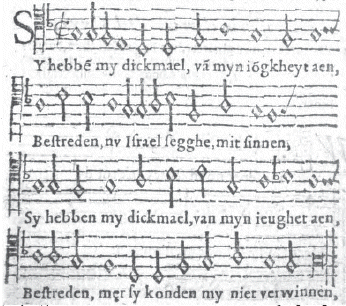 SY hebbē my dickmael, vā myn iōgkheyt aen,
Bestreden, nv Israel segghe, mit sinnen,
Sy hebben my dickmael, van myn ieughet aen,
Bestreden, mer sy konden my niet verwinnen,